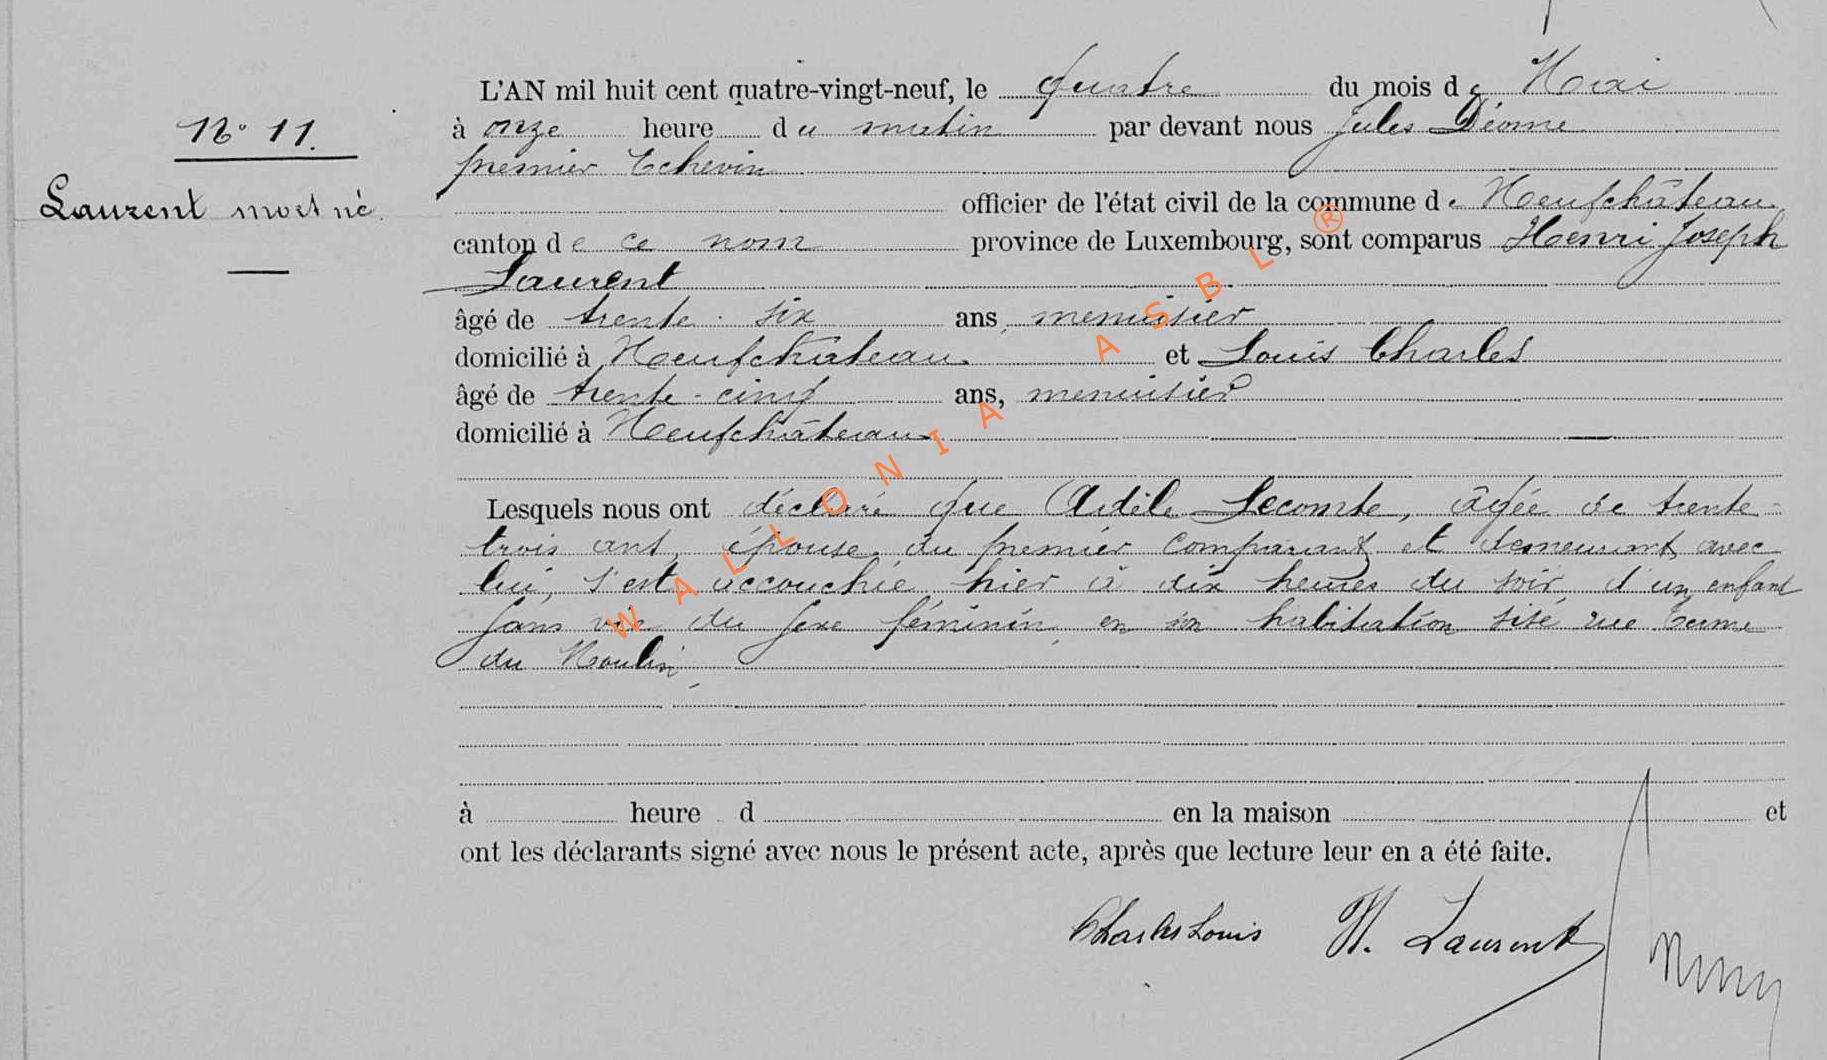 L'AN mil huit cent quatre-vingt-neuf, le quatre du mois de Mai
N° 11.
à onze heure du matin par devant nous Jules Déome
premier Echevin
Laurent mort né.
officier de l'état civil de la commune de Neufchâteau
canton de ce nom province de Luxembourg, sont comparus Henri Joseph
Laurent
âgé de trente-six ans, menuisier
domicilié à Neufchateau et Louis Charles
âgé de trente-cinq ans, menuisier
domicilié à Neufchâteau
Lesquels nous ont déclaré que Adèle Lecomte, âgée de trente-
trois ans, épouse du premier comparant et demeurant avec
lui, s'est accouchée hier à dix heures du soir, d'un enfant
sans vie du sexe féminin, en son habitation sise rue
du Moulin
à heure d en la maison et
ont les déclarants signé avec nous le présent acte, après que lecture leur en a été faite.
Charles Louis H. Laurent
WALLONIA ASBL ®